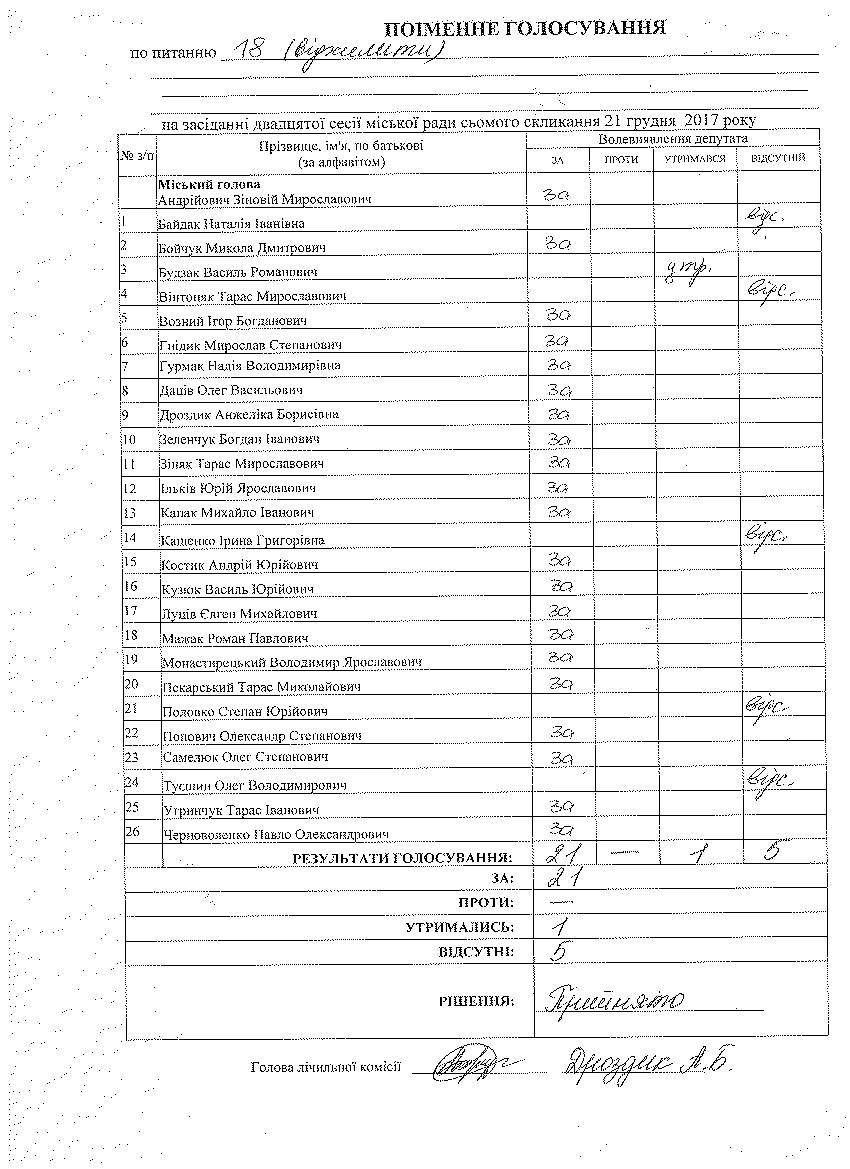 ПОІМЕННЕ ГОЛОСУВАННЯ
по питанню 18 (відхилити)
на засіданні двадцятої сесії міської ради сьомого скликання 21 грудня 2017 року
№ з/п Прізвище, ім'я, по батькові (за алфавітом) Волевиявлення депутата
ЗА ПРОТИ УТРИМАВСЯ ВІДСУТНІЙ
Міський голова
Андрійович Зіновій Мирославович за
1 Байдак Наталія Іванівна відс.
2 Бойчук Микола Дмитрович за
3 Будзак Василь Романович утр.
4 Вінтоняк Тарас Мирославович відс.
5 Возний Ігор Богданович за
6 Гнідик Мирослав Степанович за
7 Гурмак Надія Володимирівна за
8 Даців Олег Васильович за
9 Дроздик Анжеліка Борисівна за
10 Зеленчук Богдан Іванович за
11 Зіняк Тарас Мирославович за
12 Ільків Юрій Ярославович за
13 Капак Михайло Іванович за
14 Кащенко Ірина Григорівна відс.
15 Костик Андрій Юрійович за
16 Кузюк Василь Юрійович за
17 Луців Євген Михайлович за
18 Мажак Роман Павлович за
19 Монастирецький Володимир Ярославович за
20 Пекарський Тарас Миколайович за
21 Половко Степан Юрійович відс.
22 Попович Олександр Степанович за
23 Самелюк Олег Степанович за
24 Олег Володимирович відс.
25 Утринчук Тарас Іванович за
26 Черноволенко Павло Олександрович за
РЕЗУЛЬТАТИ ГОЛОСУВАННЯ: 21 — 1 5
ЗА: 21
ПРОТИ: —
УТРИМАЛИСЬ: 1
ВІДСУТНІ: 5
РІШЕННЯ: Прийнято
Голова лічильної комісії Дроздик А.Б.